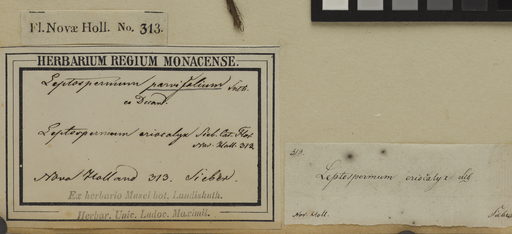 Fl. Novæ Holl. No. 313.
HERBARIUM REGIUM MONACENSE.
Leptospermum parvifolium Smith.
ex Decand.
Leptospermum eriocalyx Sieb. Cat. Flor.
Nov. Holl. 313.
Nova Holland 313. Sieber.
Ex herbario Musei bot. Landishuth.
Herbar. Univ. Ludov. Maximil.
313.
Leptospermum eriocalyx
Nov. Holl.
Sieber